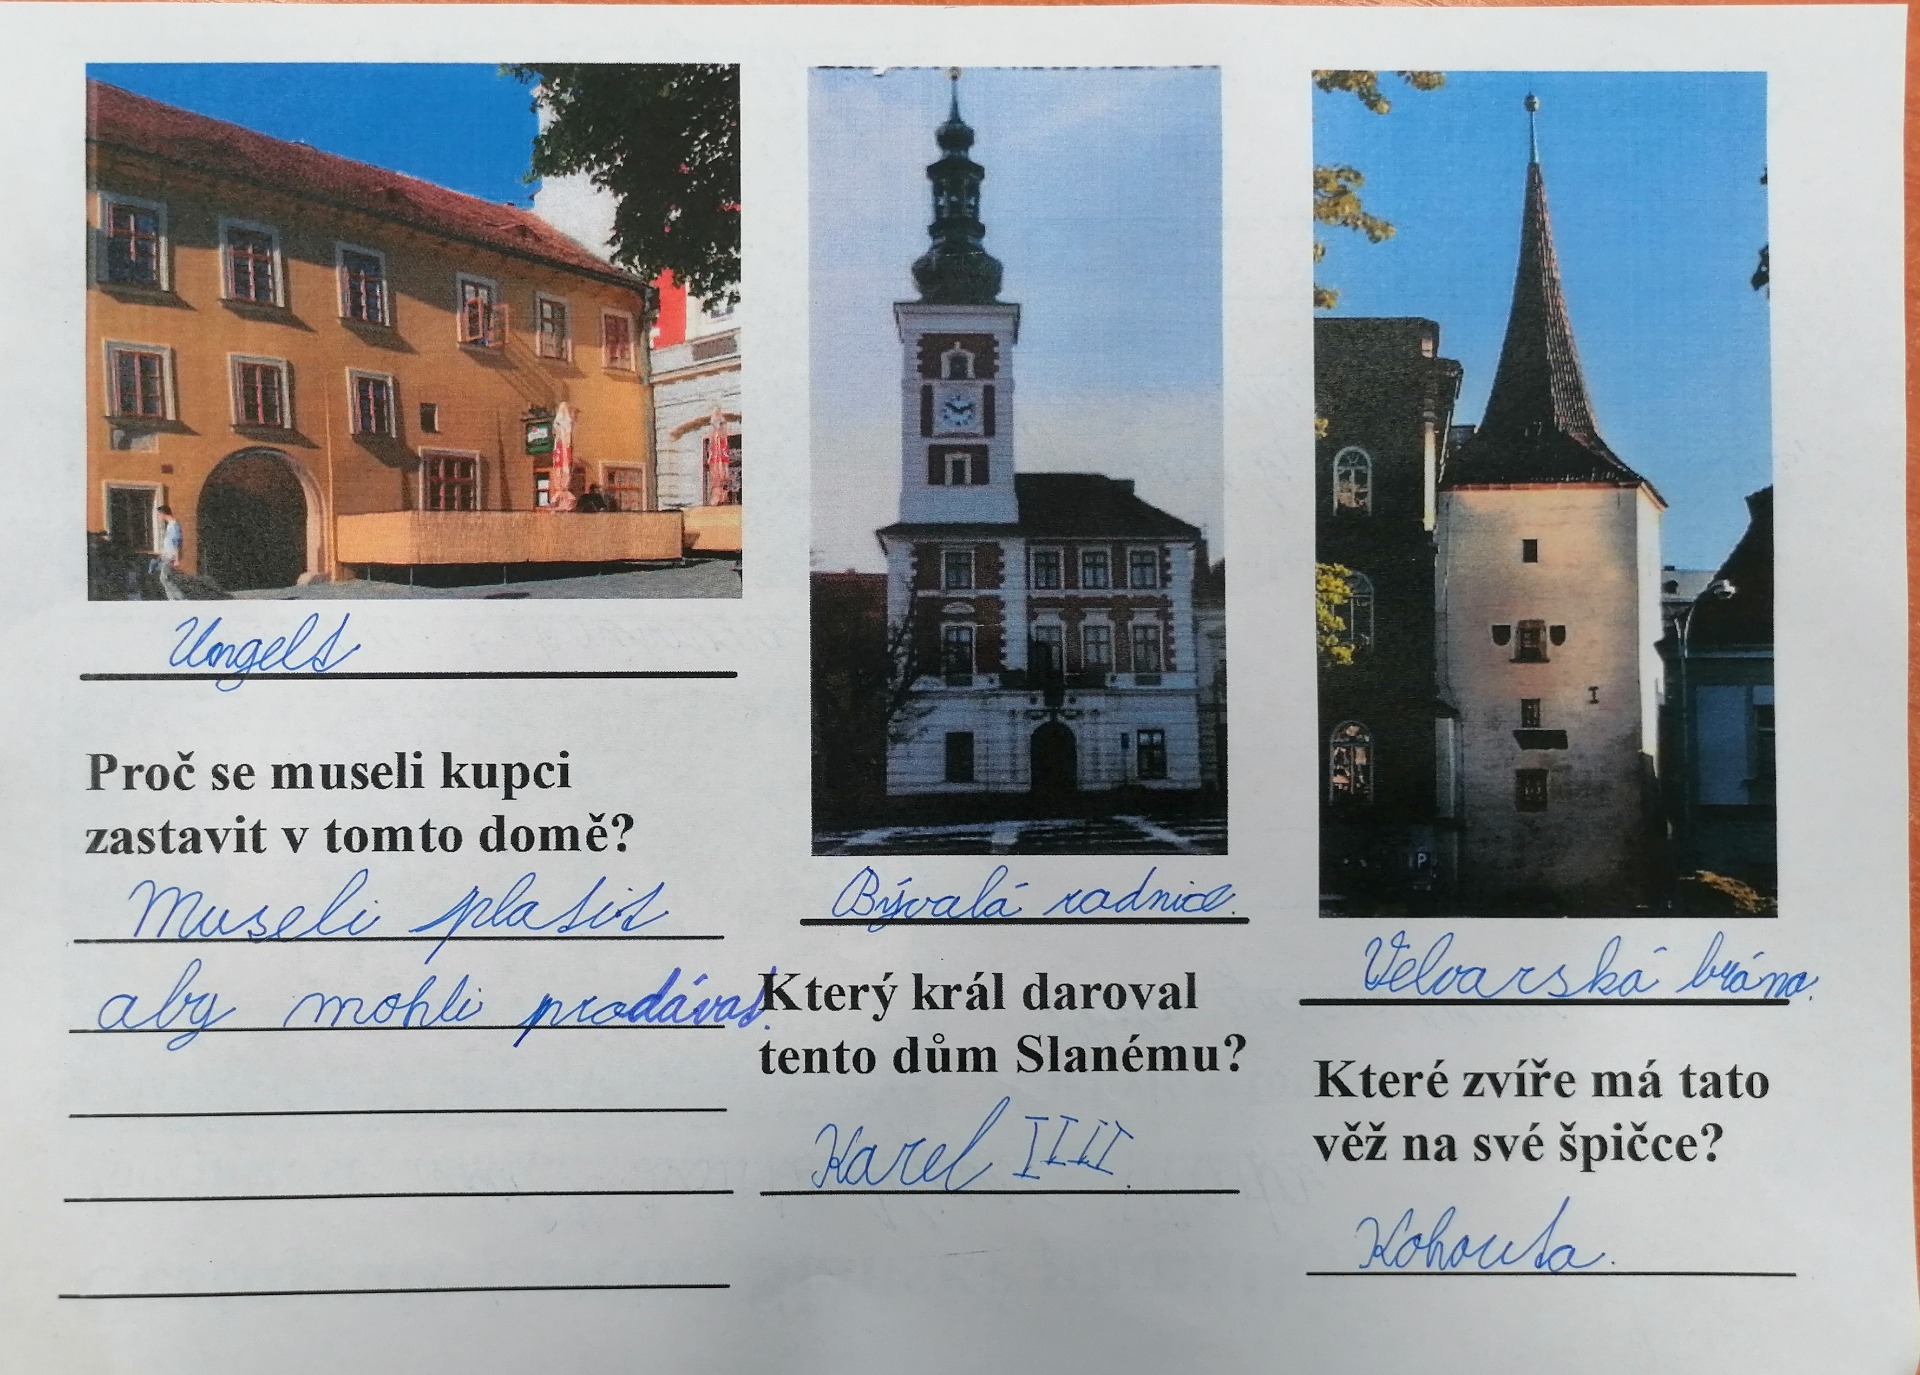 Ungelt
Proč se museli kupci
zastavit v tomto domě?
Museli platit
aby mohli prodávat.
Bývalá radnice.
Který král daroval
tento dům Slanému?
Karel IIII.
Velvarská brána.
Které zvíře má tato
věž na své špičce?
Kohouta.
P